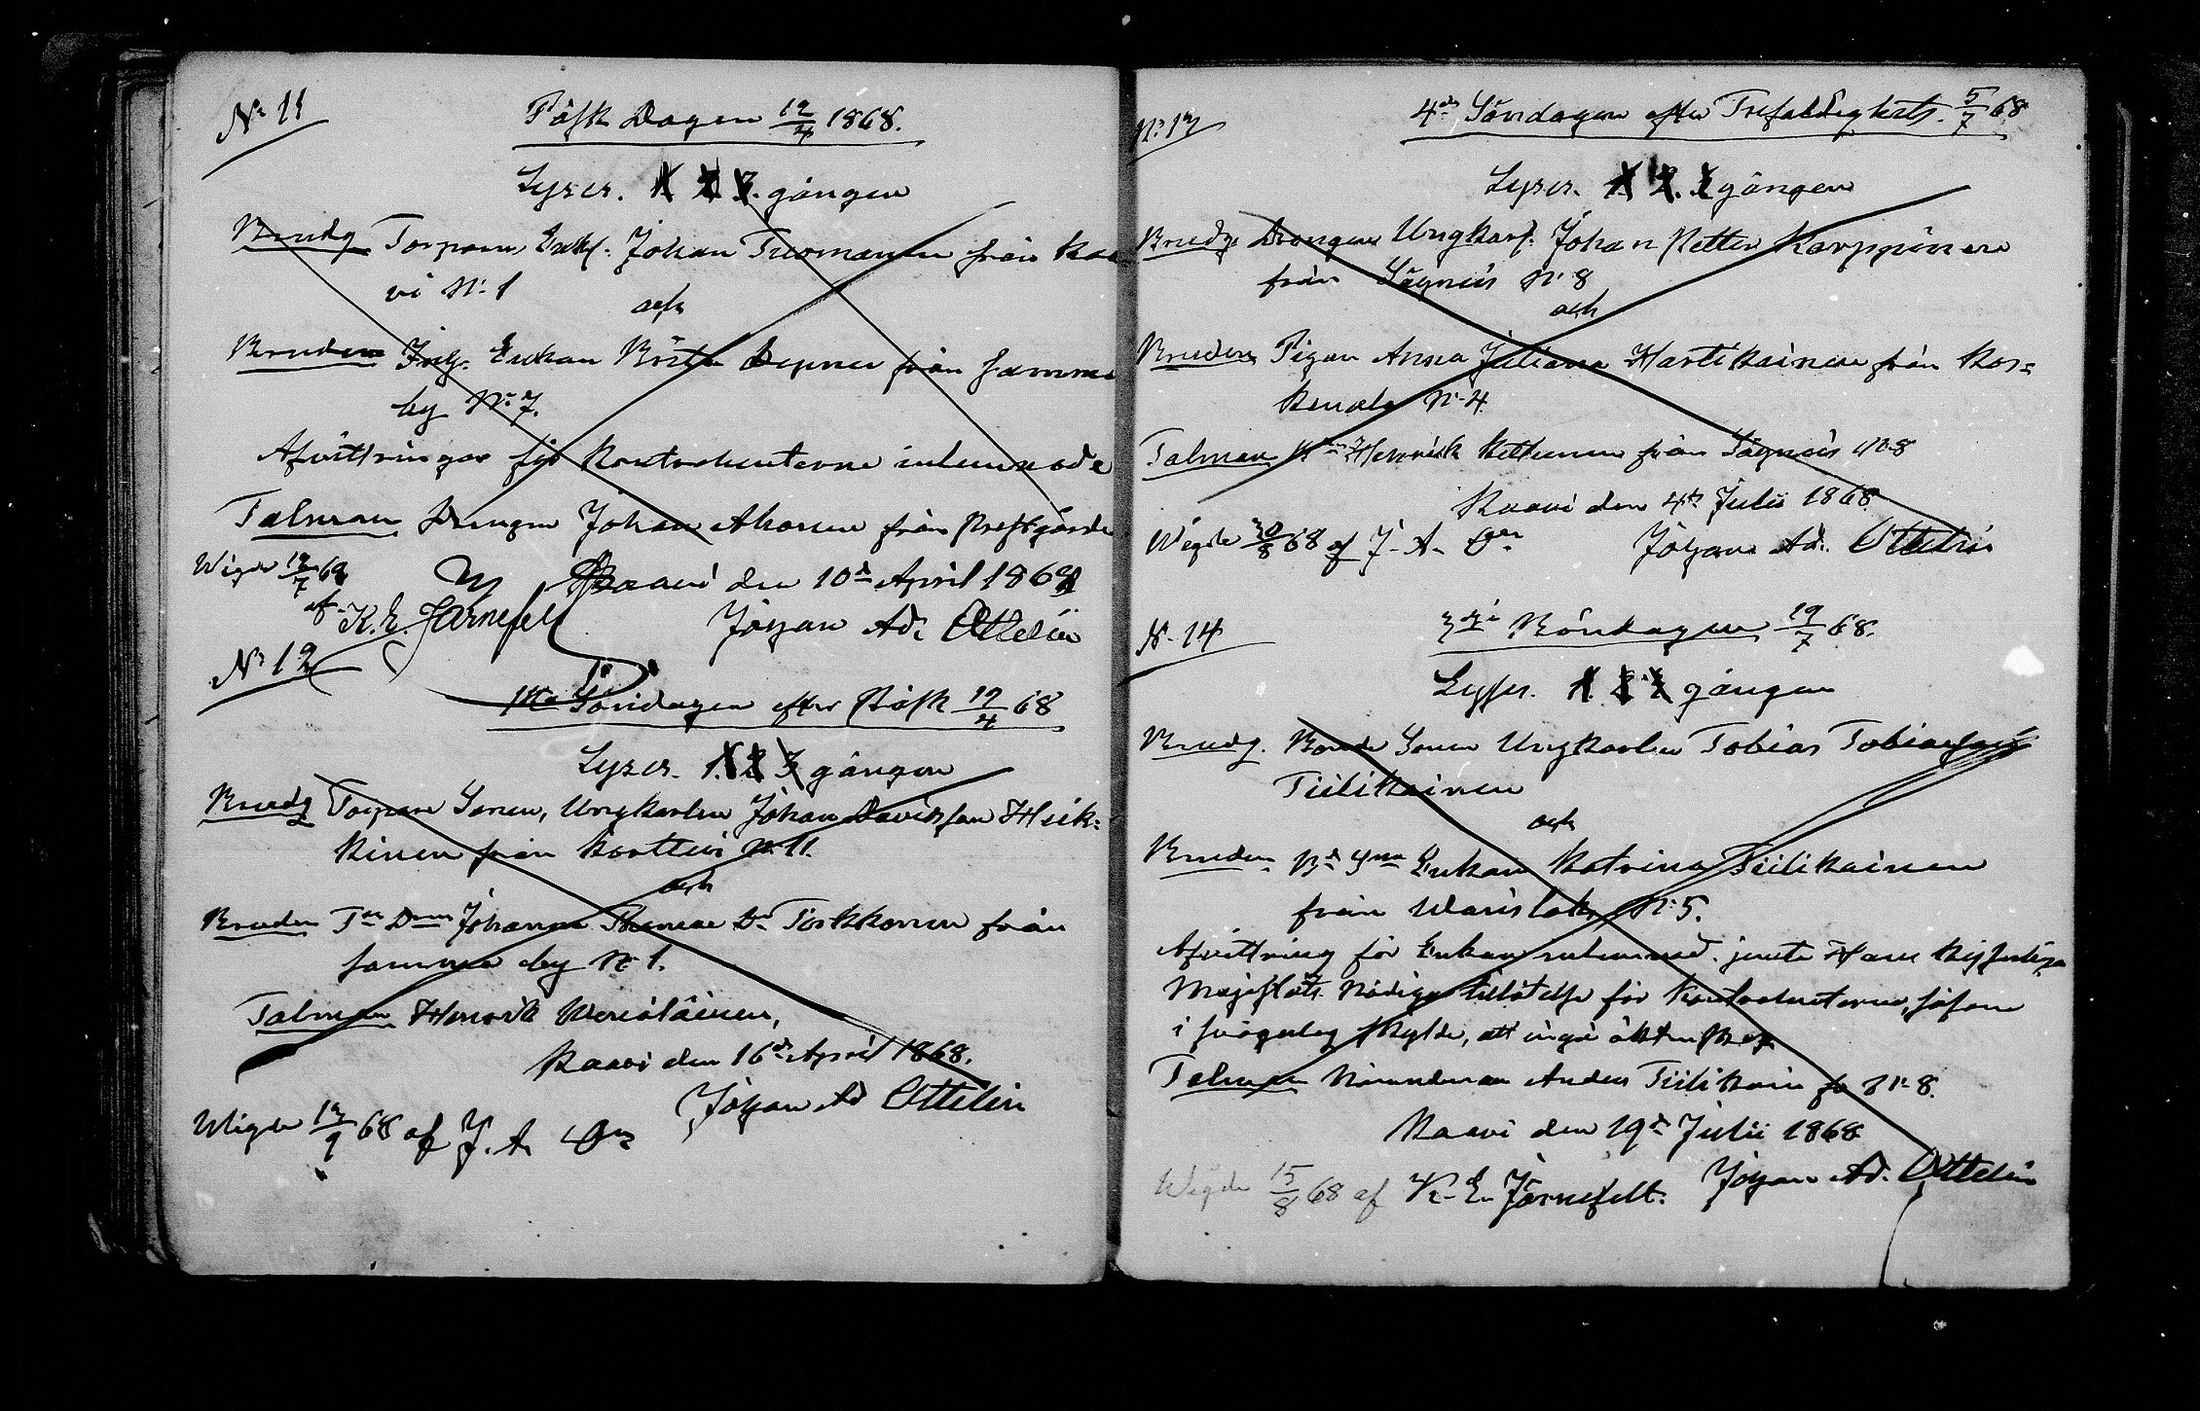 No 11
Påsk Dagen 12/4 1868.
Lyses. 1 2 3. gången
Brudg Torparen Enkl. Johan Tuomainen från Kaa
vi No 1
och
Bruden Inh. Enkan Brita Lepner från samma
by No 7.
Afvittringar för Kontrahenterne inlemnade
Talman Drengen Johan Ahonen från Prestgårde
Wigde 12/7 68
af K. E. Järnefelt
Kaavi den 10de April 1868
Johan Ad. Ottelin
No 12
1sta Söndagen efter Påsk 19/4 68
Lyses. 1. 2 3 gången
Brudg Torpare Sonen, Ungkarlen Johan Davidsson Heik=
kinen från Kortteis No 11.
och
Bruden Tre Dren Johanna Dr Torkkonen från
samma by No 1.
Talman Henrik Wenäläinen,
Kaavi den 16de April 1868.
Johan Ad Ottelin
Wigde 13/9 68 af J. A. On
No 13
4de Söndagen efter Trefaldighets. 5/7 68
Lyses. 1. 2. 3 gången
Brudg Drengen Ungkarl. Johan Petter Karppinen
från Säyneis No 8
och
Bruden Pigan Anna Juliana Hartikainen från Kos=
No 4
Talman Henrik Kettunen från Säyneis No 8
Kaavi den 4de Julii 1868
Wigde 30/8 68 af J. A. On
Johan Ad. Ottelin
No 14
3dje Böndagen 19/7 68.
Lyses. 1. 2 3 gången
Brudg. Bonde Sonen Ungkarlen Tobias Tobiasson
Tiilikainen
och
Bruden Enkan Katrina Tiilikainen
från Warislaks No 5.
Afvittring för Enkan inlemnad. jemte Hans Kejserliga
Majestäts Nådiga tillåtelse för Kontrahenterne, såsom
i svågerlag skylde, att ingå äktenskap
Talman Nämndeman Anders Tiilikain fr No 8.
Kaavi den 19de Julii 1868
Wigde 15/8 68 af K. E. Järnefelt. Johan Ad. Ottelin